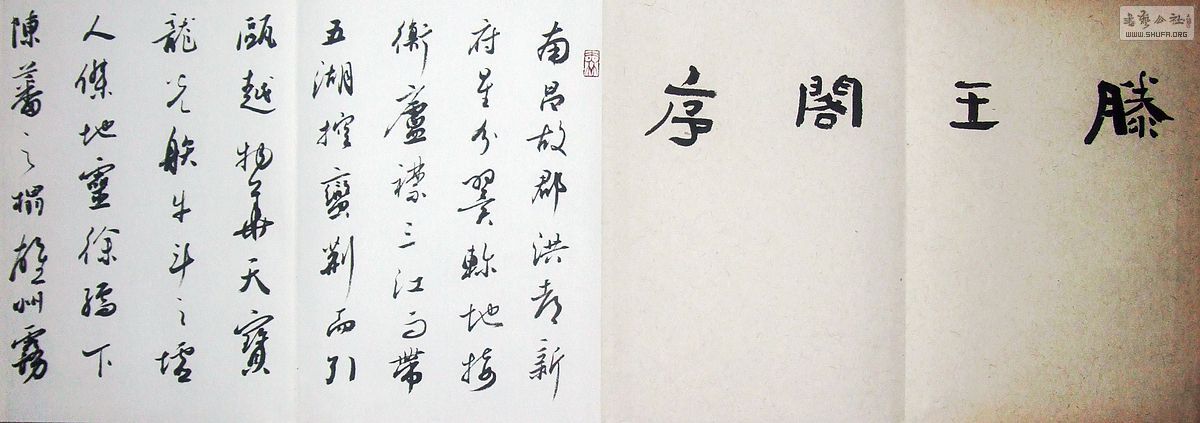 滕王閣序
南昌故郡洪都新
府星分翼軫地接
衡廬襟三江而帶
五湖控蠻荊而引
甌越物華天寶
龍光射牛斗之墟
人傑地靈徐孺下
陳蕃之榻雄州霧
書藝公社
WWW.SHUFA.ORG